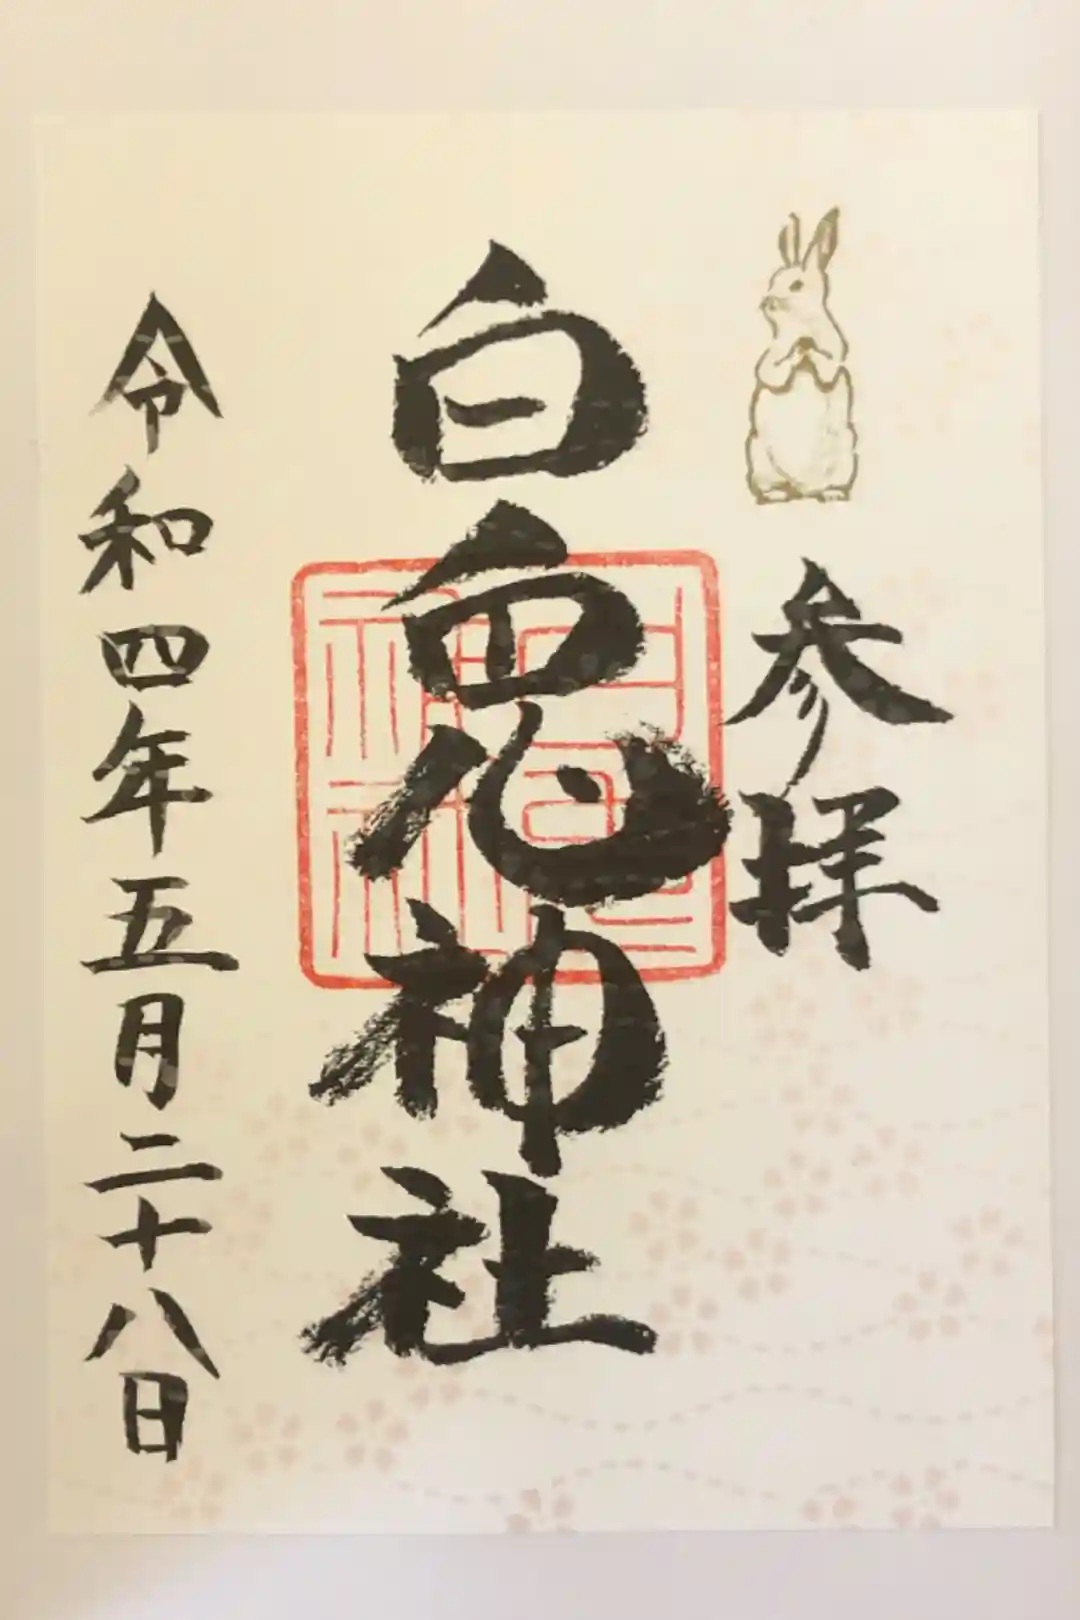 参拝
白兎神社
令和四年五月二十八日